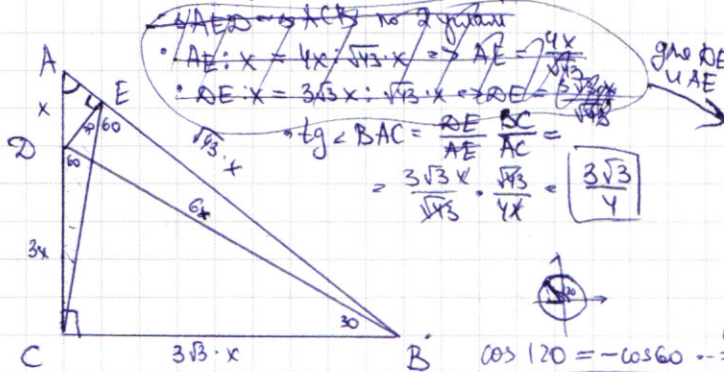 △AED ~ △ACB по 2 углам
• AE : x = 4x : √43·x => AE = 4x/√43
• DE : x = 3√3x : √43·x => DE = 3√3·x/√43
для DE
и AE
• tg∠BAC = DE/AE BC/AC =
= 3√3x/√43 · √43/4x = 3√3/4
A
x
E
60
√43·x
D
60
6x
3x
30
C
3√3·x
B
cos 120 = -cos60